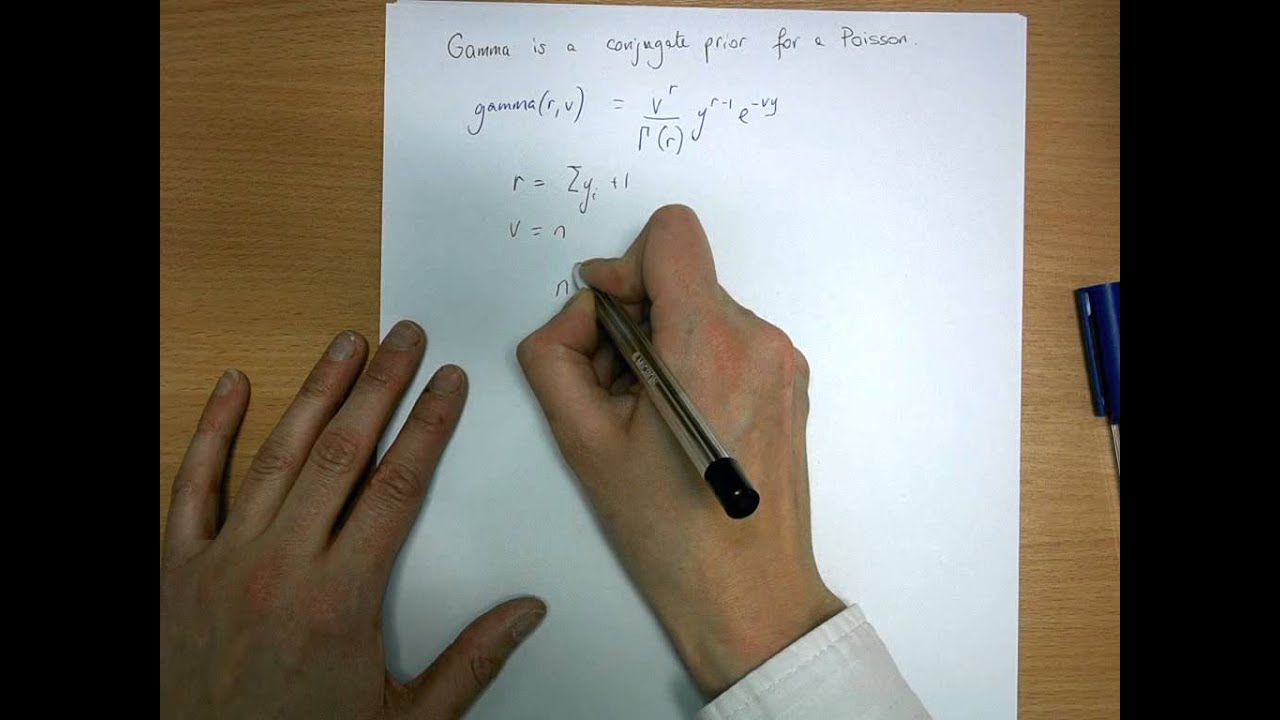 Gamma is a conjugate prior for a Poisson.
gamma(r,v) = v^r / Γ(r) y^(r-1) e^(-vy)
r = Σy_i +1
v = n
n